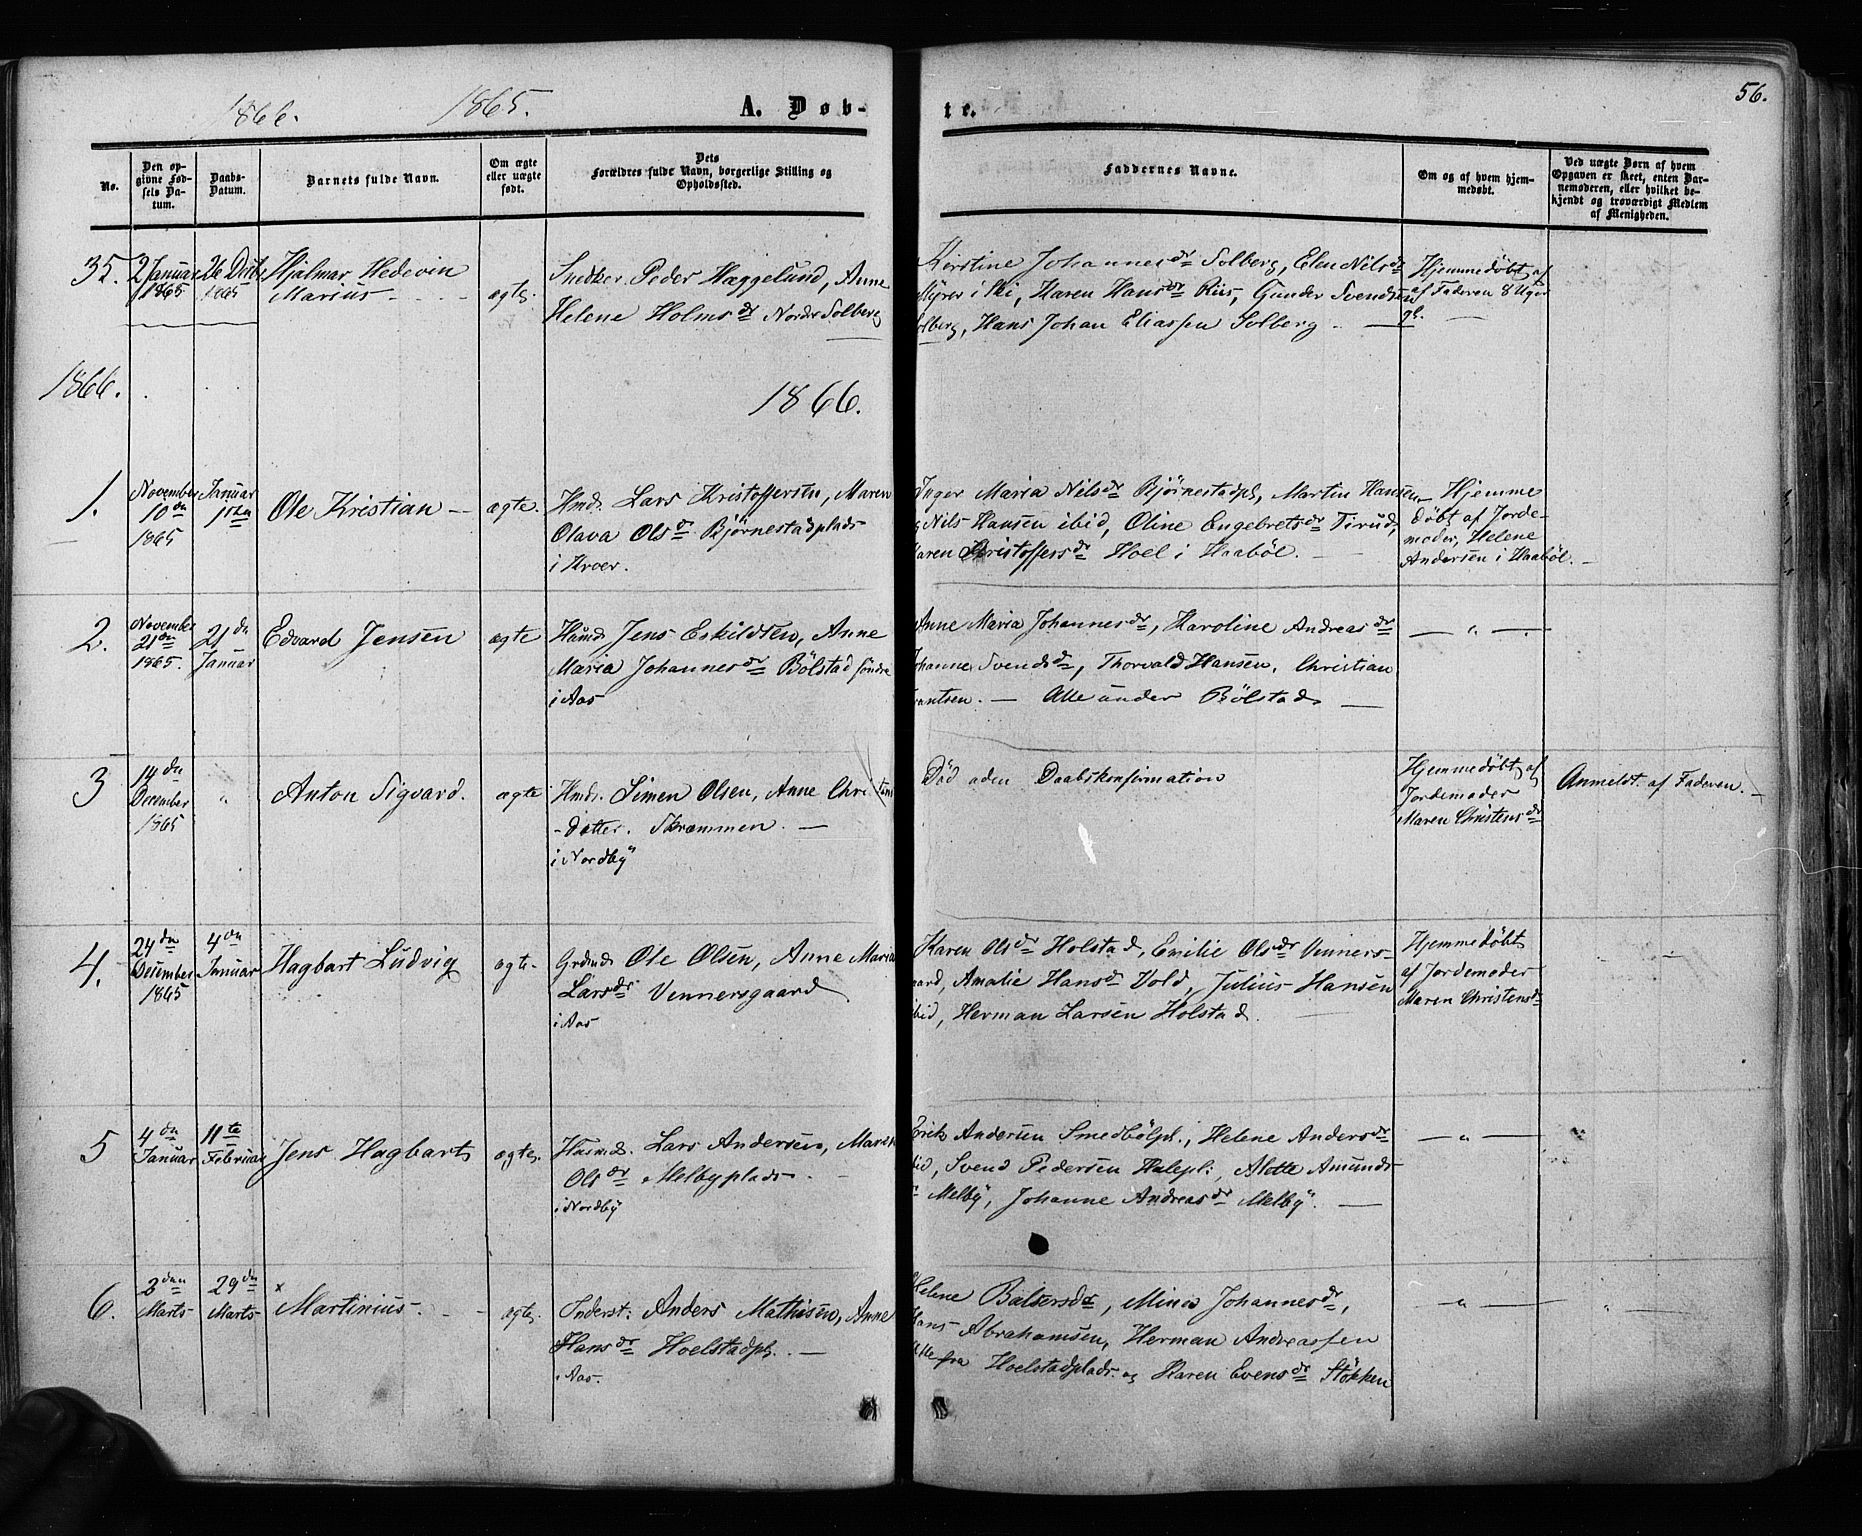 1866. 1865. A. Døb- te. 56.
No.
Den op-
givne Fød-
sels Da-
tum.
Daabs-
Datum.
Barnets fulde Navn.
Om ægte
eller uægte
født.
Dets
Forældres fulde Navn, borgerlige Stilling og
Opholdssted.
Faddernes Navne.
Om og af hvem hjem-
medøbt.
Ved uægte Børn af hvem
Opgaven er skeet, enten Bar-
nemoderen, eller hvilket be-
kjendt og troværdigt Medlem
af Menigheden.
35.
2 Januar
1865
26 Decbr
1865
Hjalmar Hedevin
Marius
ægte.
Snedker Peder Heggelund, Anne
Helene Holmsdr Nordre Solberg
Kirstine Johannesdr Solberg, Elen Nilsdr
Myrer i Ski, Karen Hansdr Riis, Gunder Svendsen
Solberg, Hans Johan Eliassen Solberg.
Hjemmedøbt af
af Faderen 8 Uger
gl.
1866.
1866.
1.
November
10de
1865
Januar
1ste
Ole Kristian
ægte.
Hmd. Lars Kristoffersen, Maren
Olava Olsdr Bjørnestadplads
i Kroer.
Inger Maria Nilsdr Bjørnestadpl, Martin Hansen
Nils Hansen ibid, Oline Engebretsdr Tirud,
Karen Christoffersdr Hoel i Haabøl.
Hjemme
døbt af Jorde-
moder, Helene
Andersen i Haabøl.
2.
November
21de
1865.
21de
Januar
Edvard Jensen
ægte
Huusmd. Jens Eskildsen, Anne
Maria Johannesdr Bölstad søndre
i Aas
Anne Maria Johannesdr, Karoline Andreasdr
Johanne Svendsdr, Thorvald Hansen, Christian
Frantsen. Alle under Bölstad
"
3
14de
December
1865
"
Anton Sigvard.
ægte
Hmd. Simen Olsen, Anne Christens
-datter. Skrammen.
i Nordby
Død uden Daabskonfirmation
Hjemmedøbt af
Jordemoder
Maren Christensdr
Anmeldt af Faderen.
4.
24de
December
1865
4de
Januar
Hagbart Ludvig
ægte.
Grdmd. Ole Olsen, Anne Maria
Larsdr Vennersgaard
i Aas
Karen Olsdr Holstad, Emilie Olsdr Venners-
gaard, Amalie Hansdr Vold, Julius Hansen
ibid, Herman Larsen Holstad.
Hjemmedøbt
af Jordemoder
Maren Christensdr
5
4de
Januar
11te
Februar
Jens Hagbart
ægte.
Huusmd. Lars Andersen, Maren
Olsdr Melbyplads.
i Nordby
Erik Andersen Smedbölpl., Helene Andersdr
ibid, Svend Pedersen Halepl, Alette Amunds-
dr Melby, Johanne Andreasdr Melby.
"
6.
3den
Marts
29de
Marts
x
Martinius
ægte.
Inderst. Anders Mathisen, Anne
Hansdr Hoelstadpl.
i Aas.
Helene Baltsersdr, Mina Johannesdr,
Hans Abrahamsen, Herman Andreassen
Alle fra Hoelstadplads og Karen Evensdr Stökken
"
"